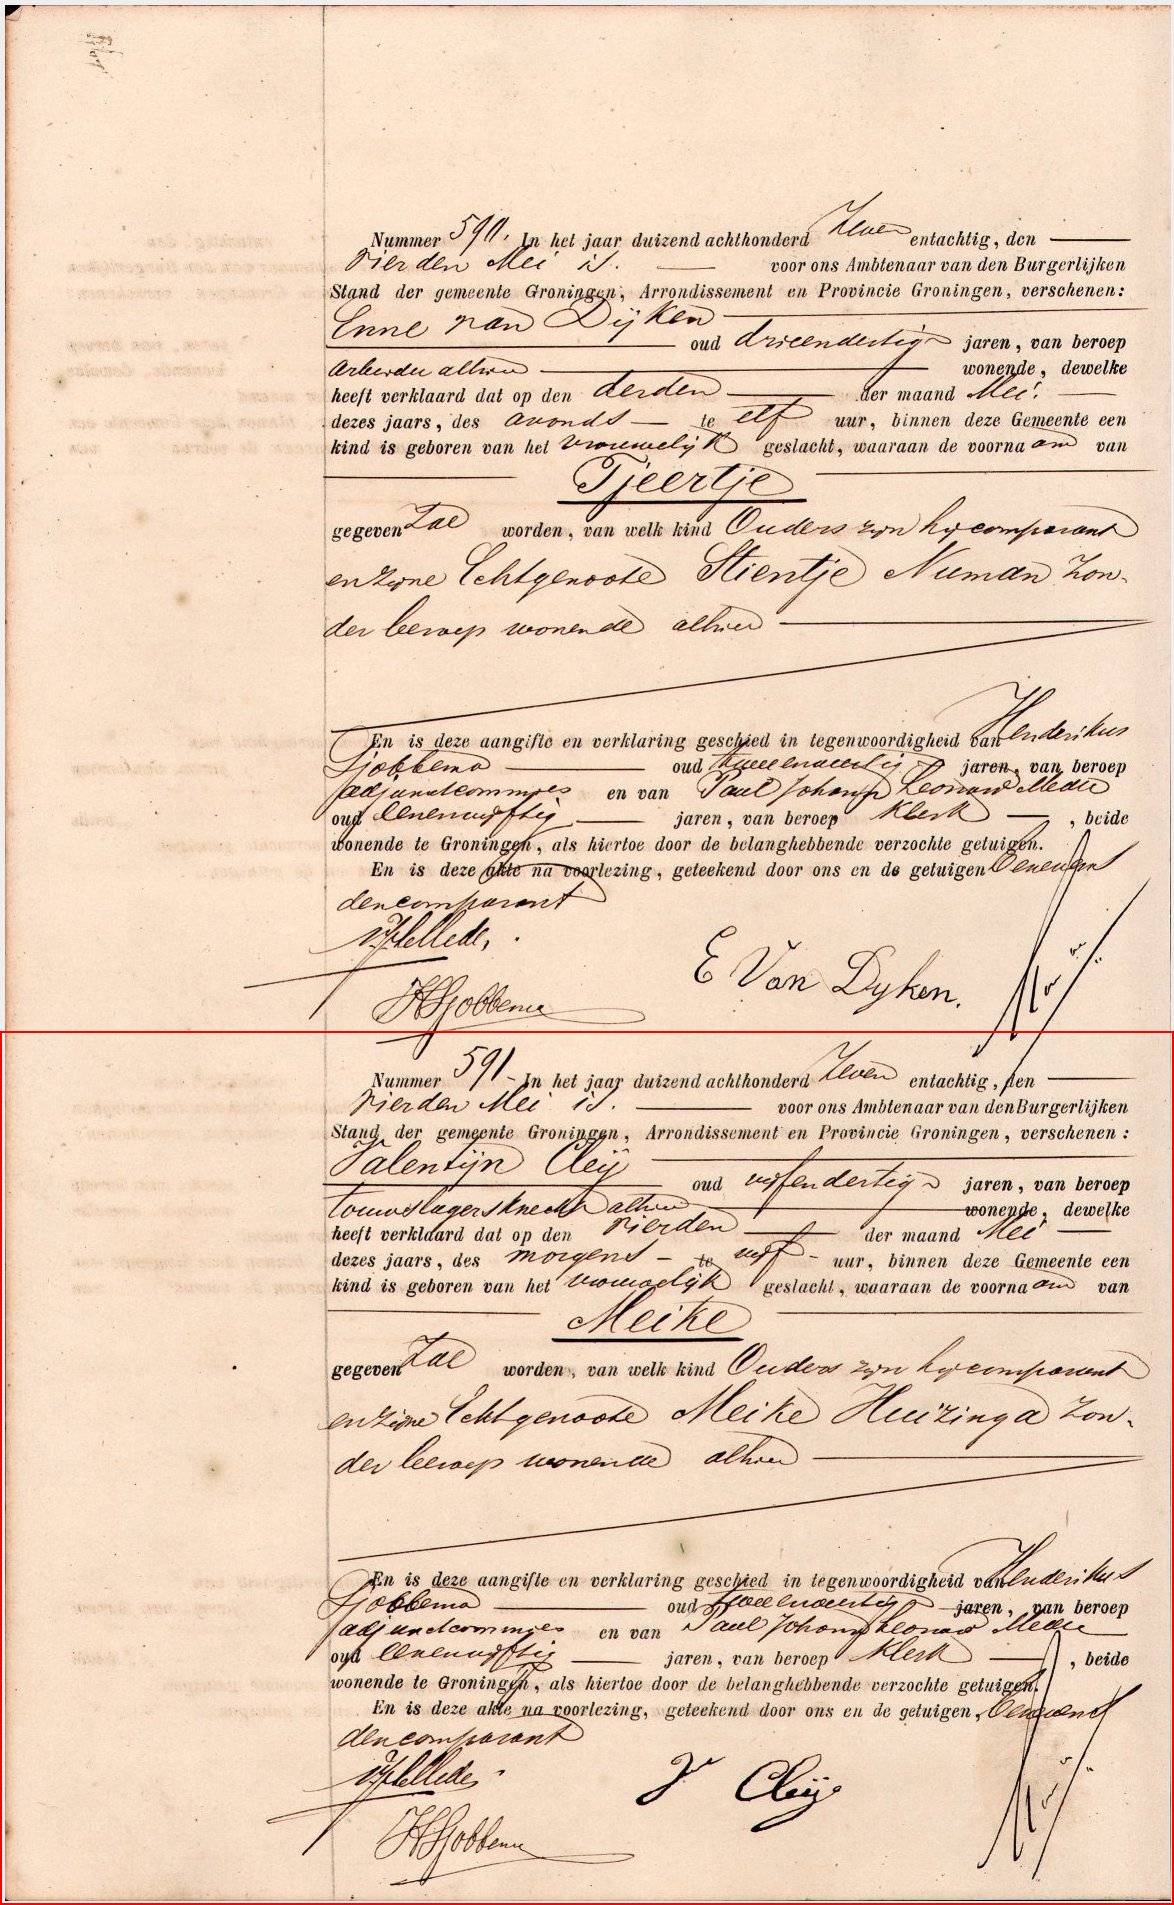 Nummer 590. In het jaar duizend achthonderd Zeven entachtig, den
vierden Mei is. voor ons Ambtenaar van den Burgerlijken
Stand der gemeente Groningen, Arrondissement en Provincie Groningen, verschenen:
Enne van Dijken
oud drieendertig jaren, van beroep
Arbeider alhier wonende, dewelke
heeft verklaard dat op den derden der maand Mei
dezes jaars, des avonds te elf uur, binnen deze Gemeente een
kind is geboren van het vrouwelijk geslacht, waaraan de voornaam van
Tjeertje
gegeven zal worden, van welk kind Ouders zijn hij comparant
en zijne Echtgenoote Stientje Numan zon-
der beroep wonende alhier
En is deze aangifte en verklaring geschied in tegenwoordigheid van Henderikus
Sjobbema oud jaren, van beroep
adjunctcommies en van Paul Johann
oud eenenvijftig jaren, van beroep Klerk, beide
wonende te Groningen, als hiertoe door de belanghebbende verzochte getuigen.
En is deze akte na voorlezing, geteekend door ons en de getuigen benevens
den comparant
E Van Dyken.
HSjobbema
Nummer 591 - In het jaar duizend achthonderd Zeven entachtig, den
vierden Mei is. voor ons Ambtenaar van den Burgerlijken
Stand der gemeente Groningen, Arrondissement en Provincie Groningen, verschenen:
Valentijn Cleij
oud vijfendertig jaren, van beroep
touwslagersknecht alhier wonende, dewelke
heeft verklaard dat op den vierden der maand Mei
dezes jaars, des morgens - te vijf - uur, binnen deze Gemeente een
kind is geboren van het vrouwelijk geslacht, waaraan de voornaam van
Meike
gegeven zal worden, van welk kind Ouders zijn hij comparant
en zijne Echtgenoote Meike Huizinga zon-
der beroep wonende alhier
En is deze aangifte en verklaring geschied in tegenwoordigheid van Henderikus
Sjobbema oud jaren, van beroep
adjunctcommies en van Paul Johann
oud eenenvijftig jaren, van beroep Klerk, beide
wonende te Groningen, als hiertoe door de belanghebbende verzochte getuigen.
En is deze akte na voorlezing, geteekend door ons en de getuigen, benevens
den comparant
V Cleij
HSjobbema